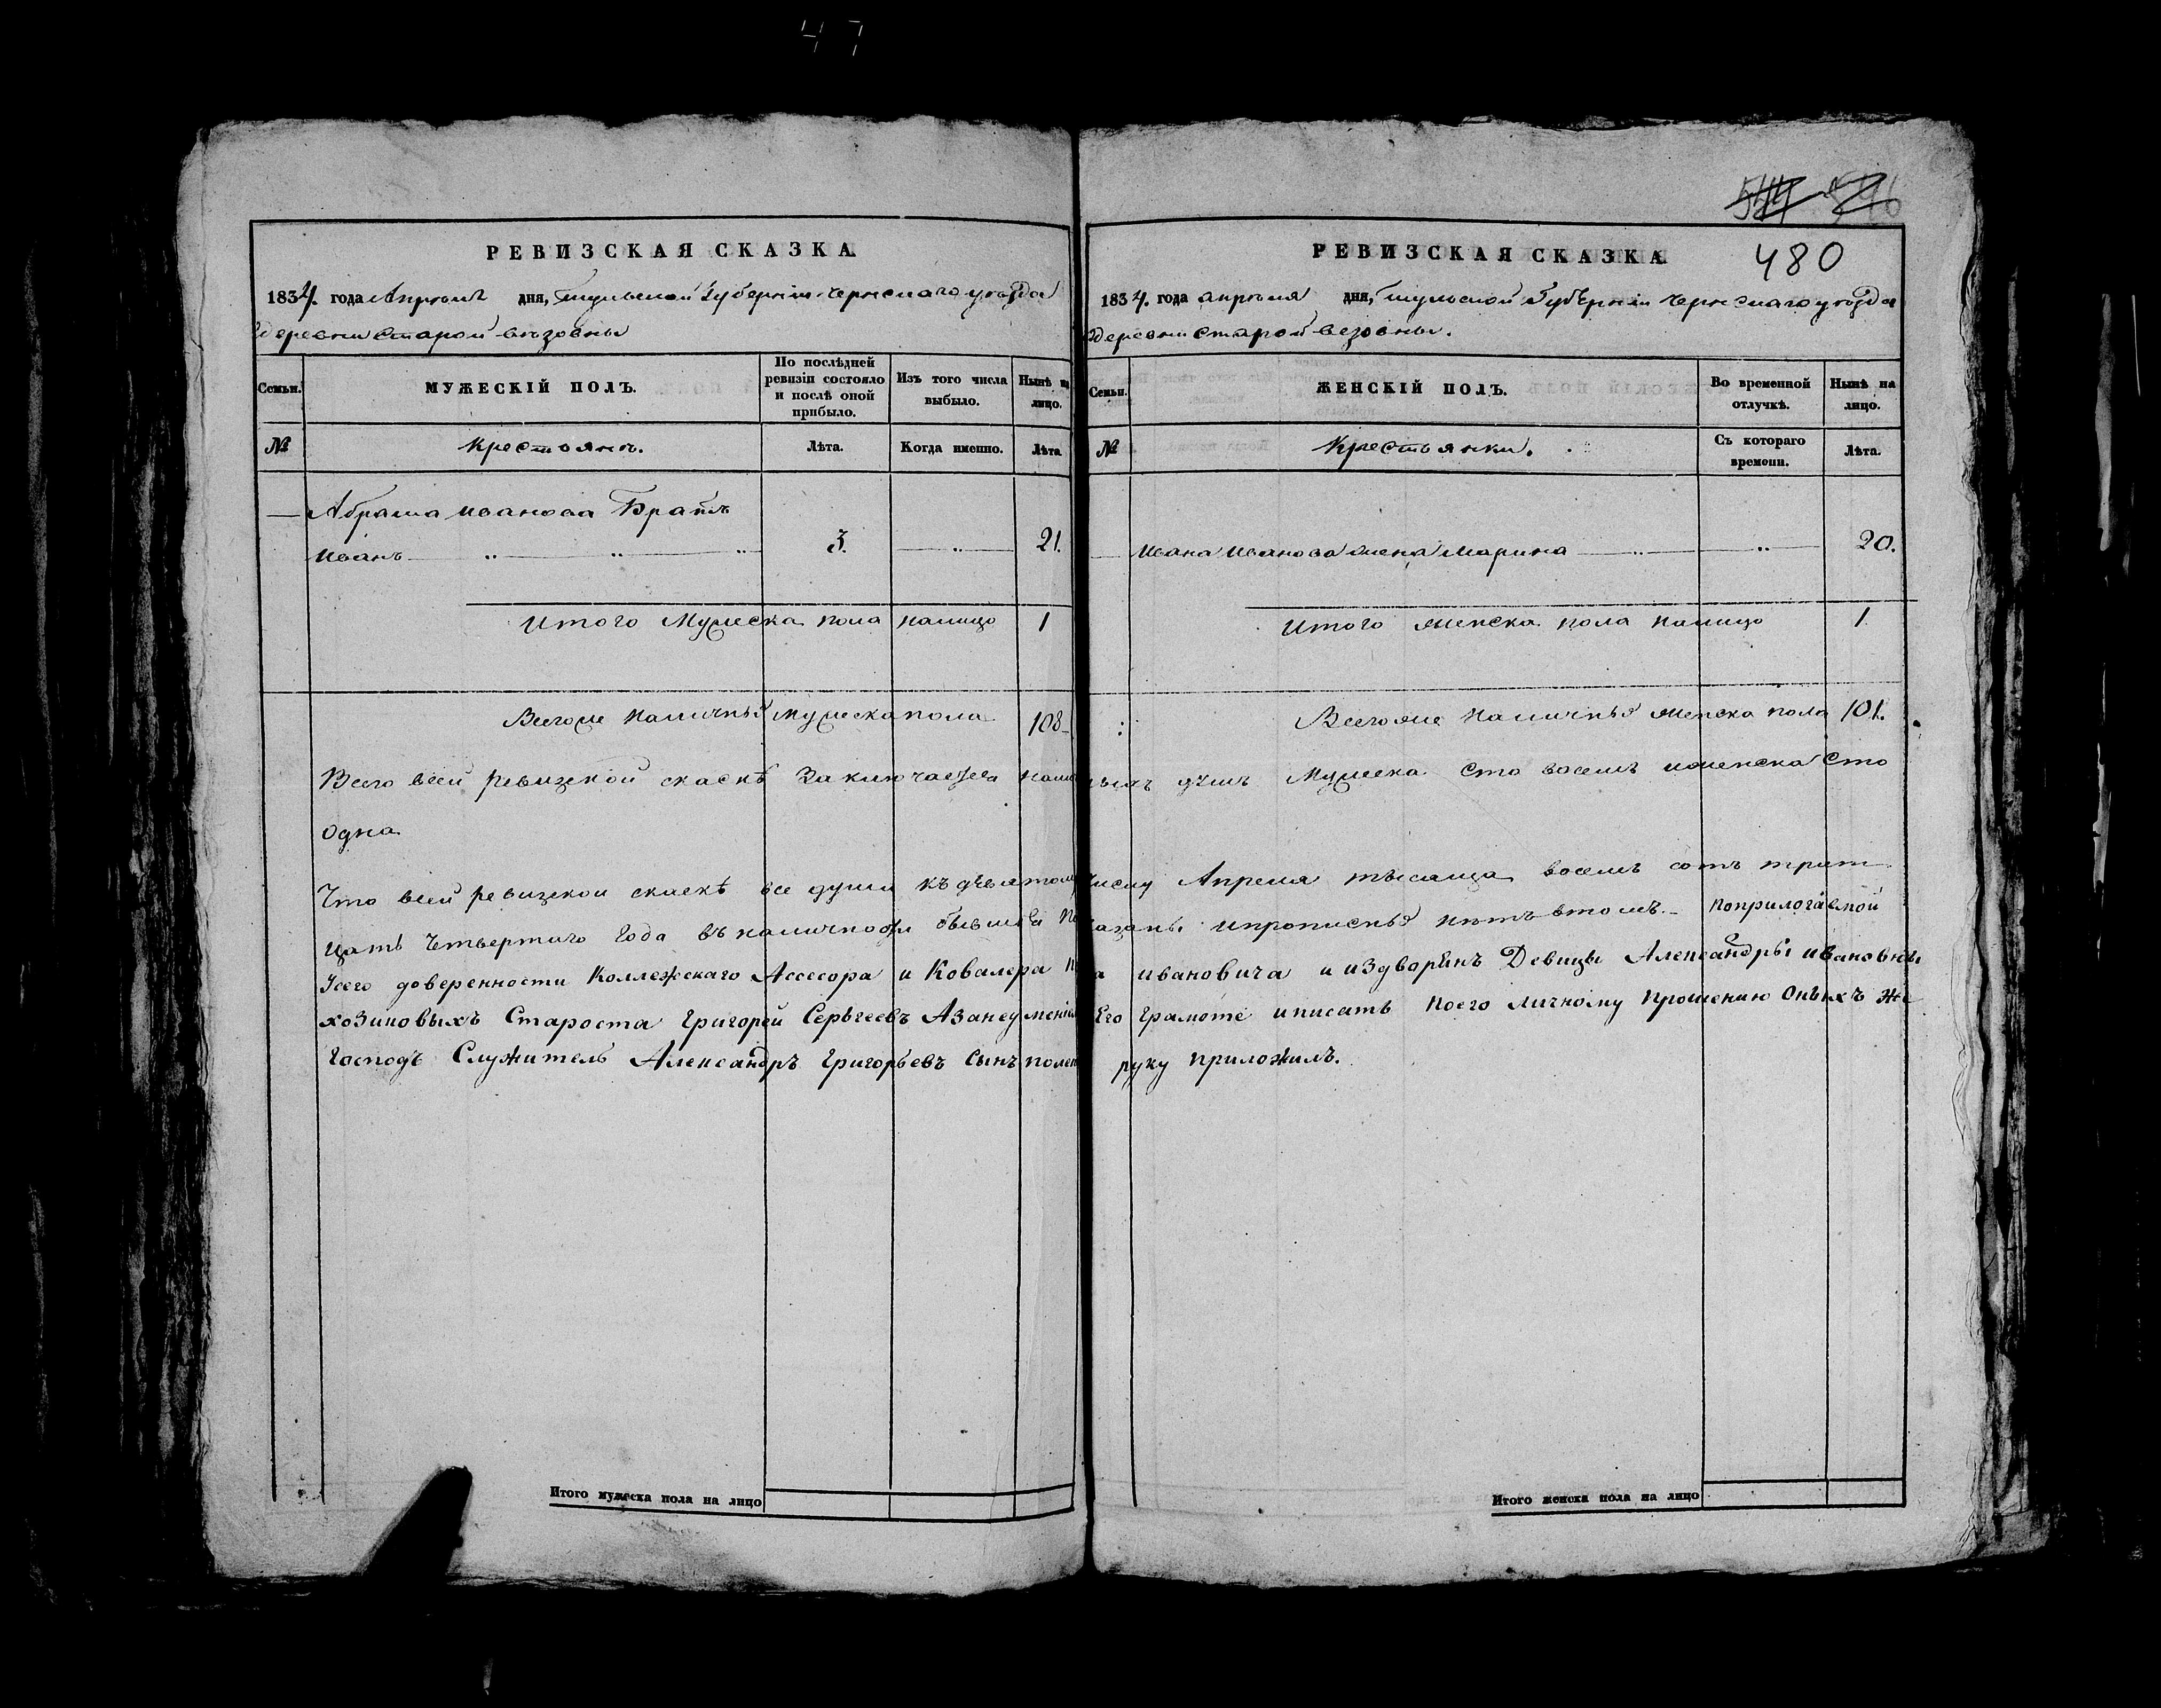 47
РЕВИЗСКАЯ СКАЗКА
1834. года Апрѣль дня, Тульской Губернiи Чернскаго уѣзда
деревни Старой вѣзовны
Семьи.
МУЖЕСКІЙ ПОЛЪ.
По послѣдней ревизіи состояло и послѣ оной прибыло.
Изъ того числа выбыло.
Нынѣ на лицо.
№
Крестьянъ.
Лѣта.
Когда именно.
Лѣта.
Абрама Иванова Братъ
Иванъ 3. 21.
Итого Мужеска пола налицо 1
Всегоже Наличныхъ мужеска пола 108
Итого мужеска пола на лицо
480
РЕВИЗСКАЯ СКАЗКА
1834. года апрѣля дня, Тульской Губѣрнiи Чернскаго уѣзда
деревни Старой везовны.
Семьи.
ЖЕНСКІЙ ПОЛЪ.
Во временной отлучкѣ.
Нынѣ на лицо.
№
Крестьянки.
Съ котораго времени.
Лѣта.
Ивана Иванова жена Марина 20.
Итого женска пола налицо 1
Всегоже наличныхъ женска пола 101.
Всего всей ревизской скаскѣ Заключается нали ныхъ душъ Мужеска Сто восемь иженска Сто
Одна
Что всей ревизской скаскѣ все души къ числу Апреля тысяща восемь сотъ трит
цать Четвертого Года въ наличности бывшiя по казаны ипрописныхъ нѣтъ втомъ. Поприлогаемой
Усего доверенности Коллежскаго Ассесора и Ковалера ивановича и издворянъ Девицы Александры ивановны
хозиковыхъ Староста Григорей Серьгеевъ Азанеуменiем Его грамоте иписать поего личному прошению Оныхъ же
Господъ Служитель Александръ Григорьевъ Сынъ руку приложилъ.
Итого женска пола на лицо